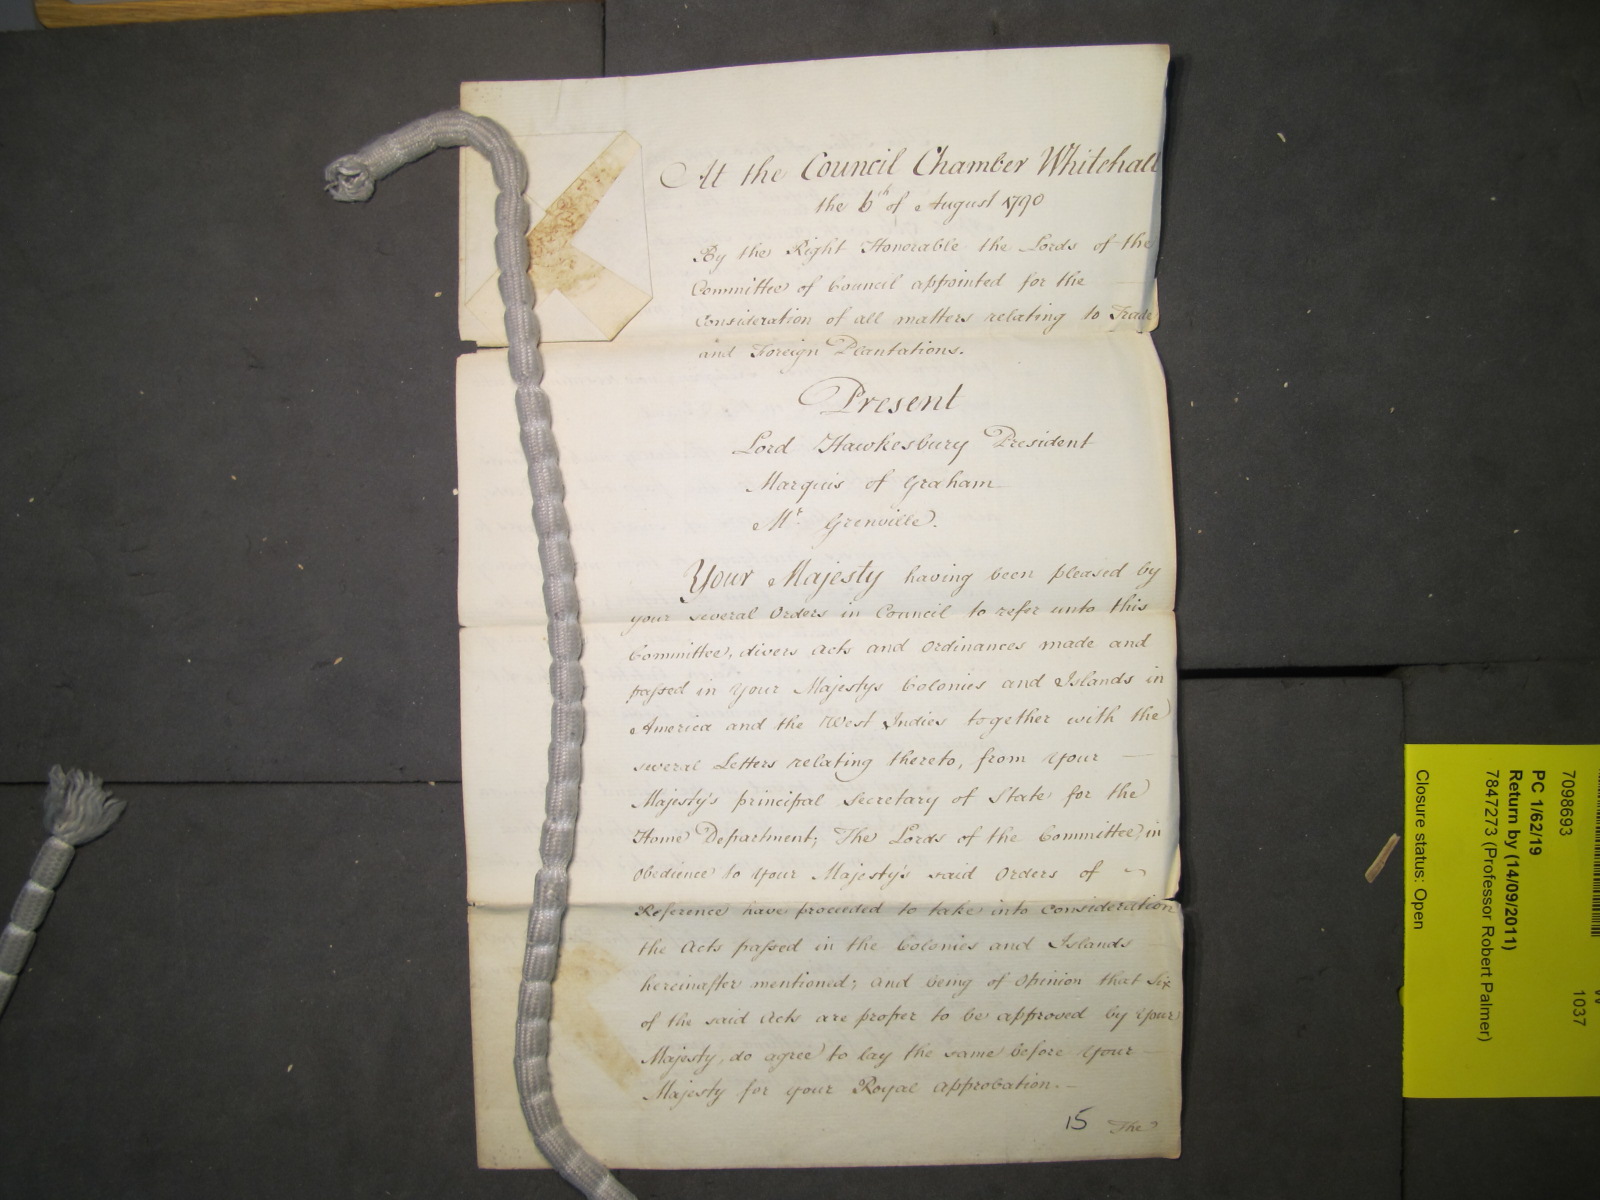 At the Council Chamber Whitehall
the 6th of August 1790
By the Right Honorable the Lords of the
Committee of Council appointed for the
Consideration of all matters relating to Trade
and Foreign Plantations.
Present
Lord Hawkesbury President
Marquis of Graham
Mr. Grenville.
Your Majesty having been pleased by
your several Orders in Council to refer unto this
Committee, divers Acts and Ordinances made and
passed in Your Majestys Colonies and Islands in
America and the West Indies together with the
several Letters relating thereto, from Your —
Majesty's principal Secretary of State for the
Home Department; The Lords of the Committee, in
Obedience to Your Majesty's said Orders of
Reference have proceeded to take into consideration
the Acts passed in the Colonies and Islands
hereinafter mentioned; and being of Opinion that Six
of the said Acts are proper to be approved by Your
Majesty, do agree to lay the same before Your —
Majesty for your Royal Approbation. —
15 The
7098693
1037
PC 1/62/19
Return by (14/09/2011)
7847273 (Professor Robert Palmer)
Closure status: Open